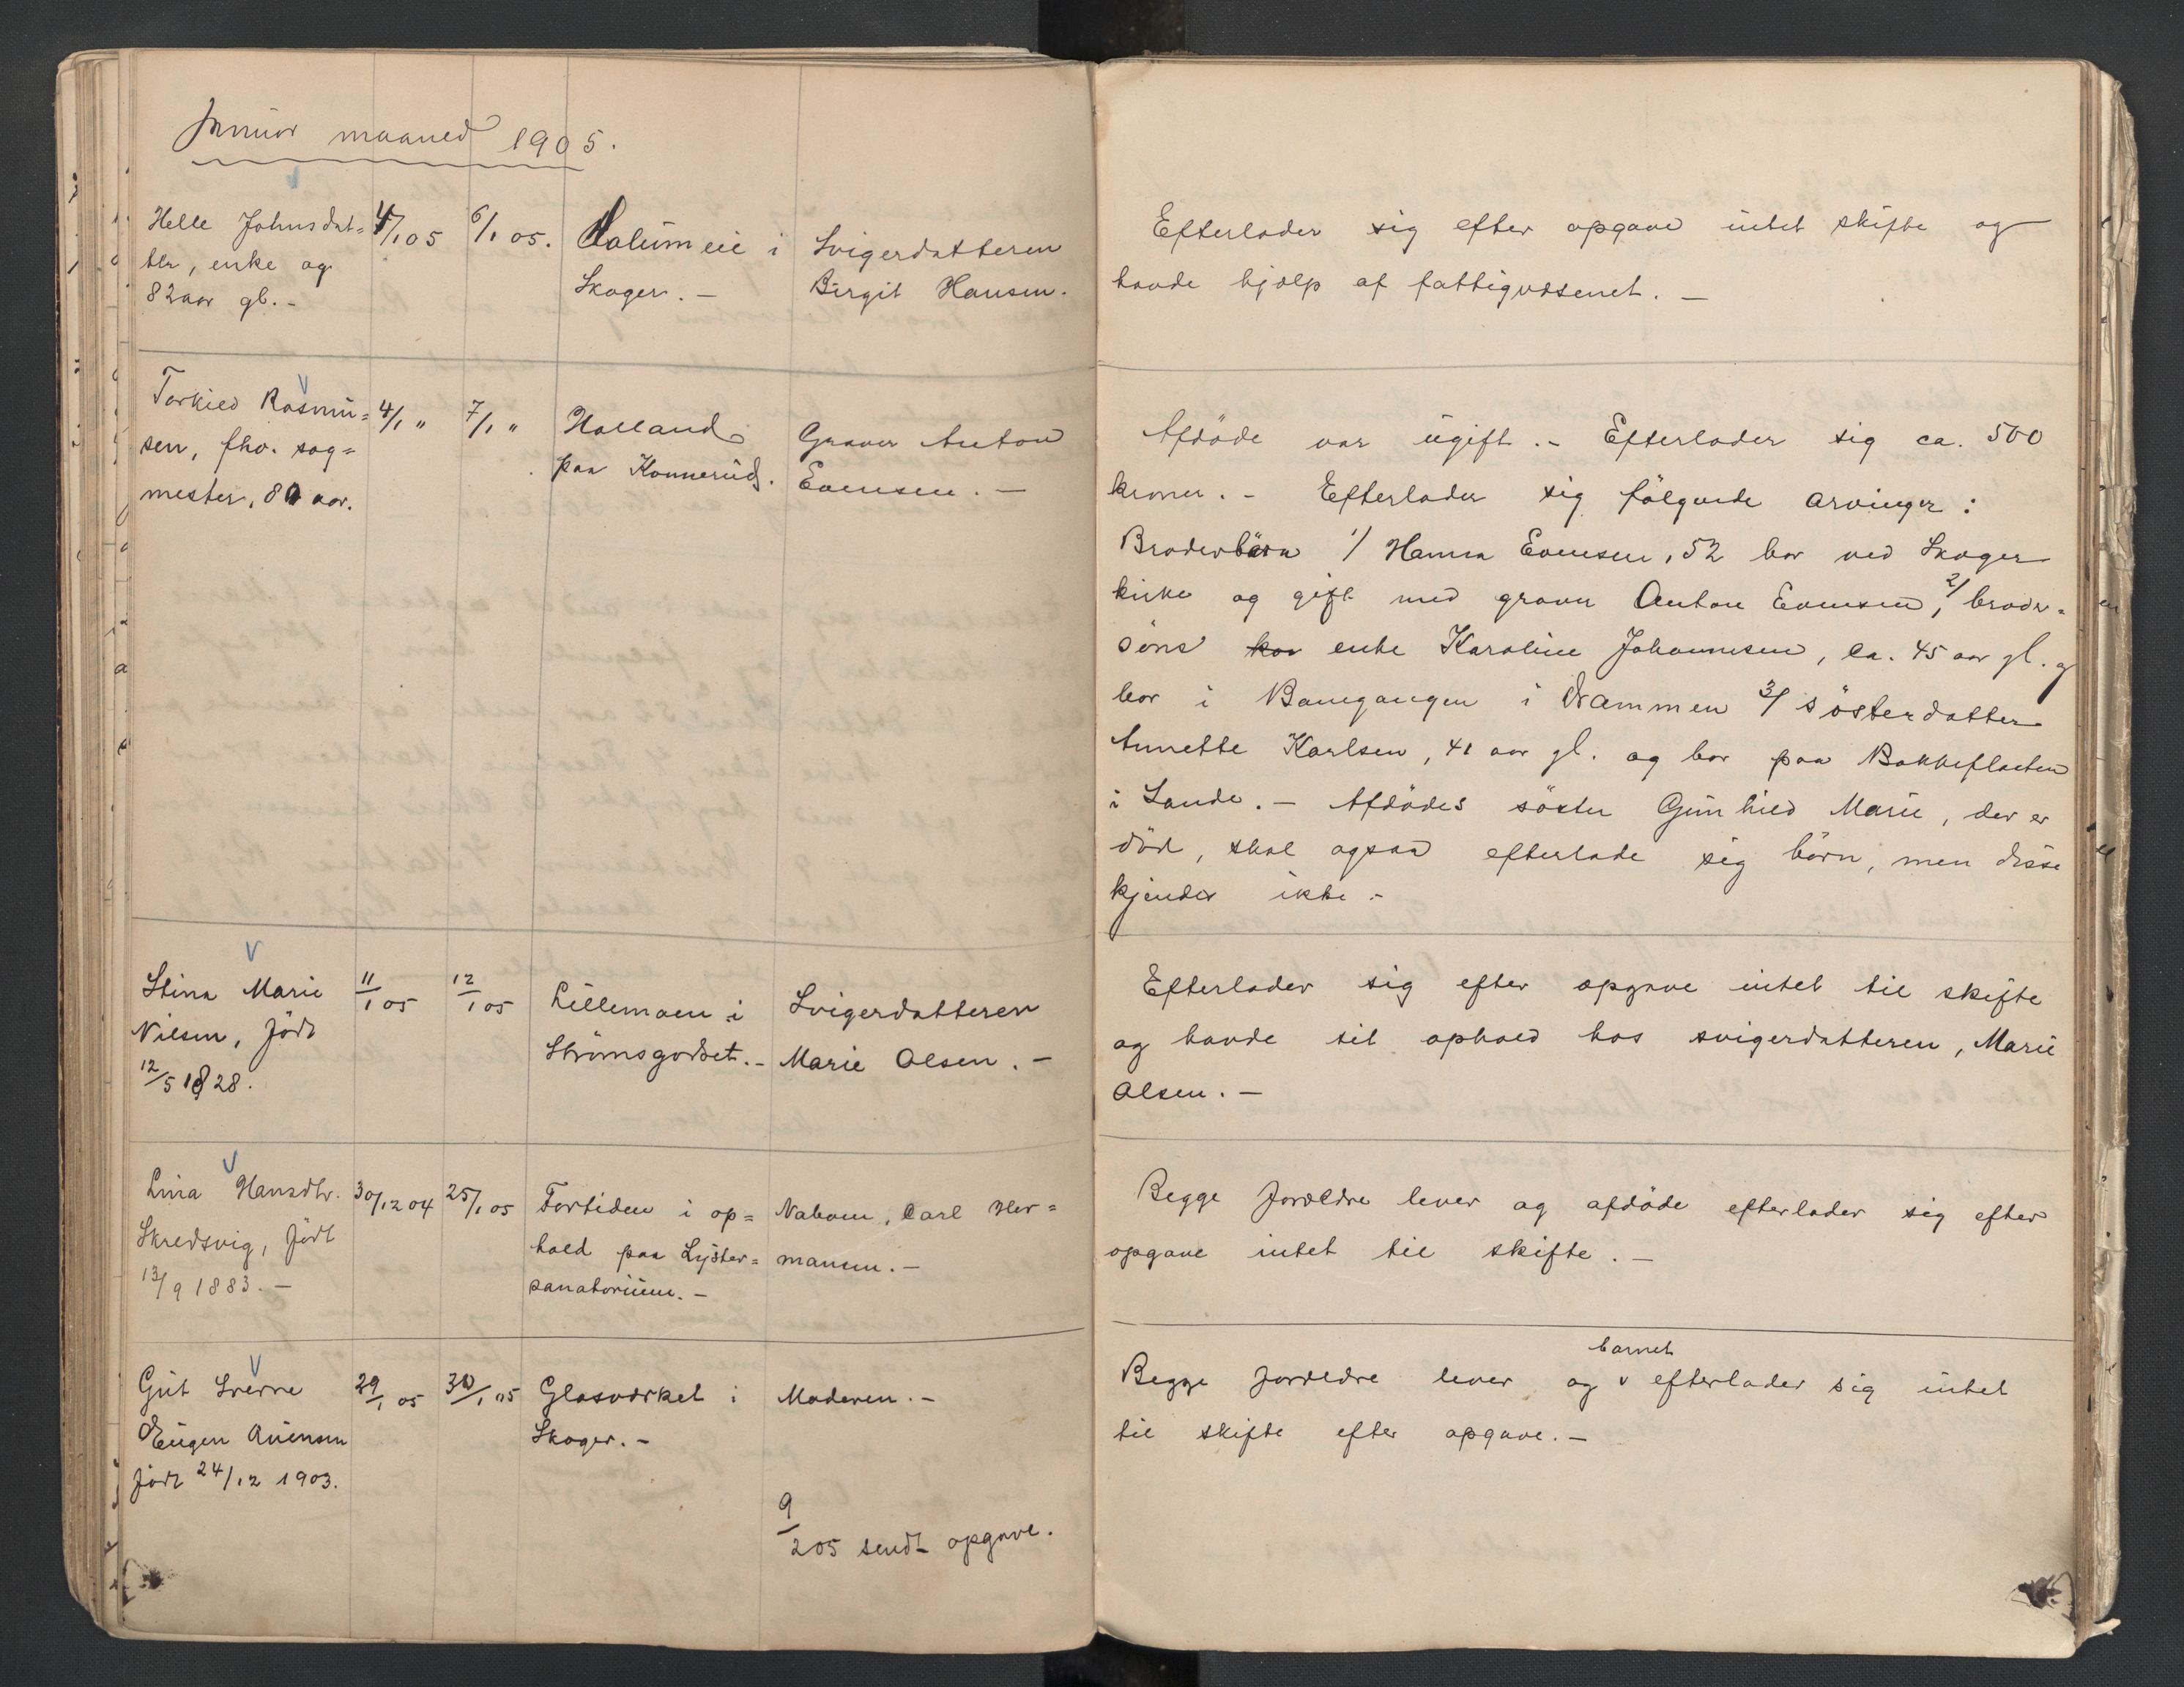 Januar maaned 1905.
Helle Johnsdat=
ter, enke og
82 aar gl. -
4/1 05
6/1 05.
Solumeie i
Skoger. -
Svigerdatteren
Birgit Hansen.
Efterlader sig efter opgave intet skifte og
havde hjælp af fattigvæsenet. -
Torkild Rasmu=
sen, fhv. sag=
mester, 80 aar.
4/1 "
7/1 "
Holland
paa Konnerud.
Graver Anton
Evensen. -
Afdöde var ugift. - Efterlader sig ca. 500
kroner. - Efterlader sig fölgende arvinger:
Broderbörn 1/ Hanna Evensen, 52 bor ved Skoger
kirke og gift med graver Anton Evensen, 2/ broder=
söns enke Karoline Johannesen, ca. 45 aar gl. og
bor i Banegangen i Drammen 3/ sösterdatter
Annette Karlsen, 41 aar gl. og bor paa Bakkeflaten
i Sande. - Afdödes söster Gunhild Marie, der er
död, skal ogsaa efterlade sig börn, men disse
kjendes ikke. -
Stina Marie
Nilsen, född
12/5 1828.
11/1 05
12/1 05
Lillemoen i
Strömsgodset. -
Svigerdatteren
Marie Olsen. -
Efterlader sig efter opgave intet til skifte
og havde sit ophold hos svigerdatteren, Marie
Olsen. -
Lina Hansdtr.
Skredsvig, född
13/9 1883. -
30/12 04
25/1 05
Fortiden i op=
hold paa Lyster=
sanatorium. -
Naboen, Carl Her=
mansen. -
Begge forældre lever og afdöde efterlader sig efter
opgave intet til skifte. -
Gut Sverre
Eugen
född 24/12 1903.
29/1 05
30/1 05
Glasværket i
Skoger. -
Moderen. -
Begge forældre lever og barnet efterlader sig intet
til skifte efter opgave. -
9/2 05 sendt opgave.